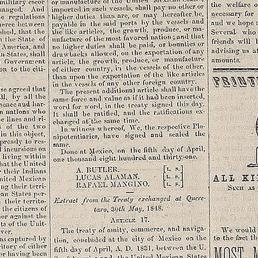 changed. And
regulations
for their own
of the State of
America, and
an State, shall
Government
ion to the citi-
se agreed that
ll, by all the
ace and har-
n nations who
e lines and ri-
of the two
in this object,
pressly to re-
d incursions on
living within
that the United
their Indians
ted Mexican
ing their terri-
an States per-
their territo-
the citizens of
or against the
s of the Uni-
ver.
as captured by
tory of either
or have been
imported in such vessels, shall pay no other or
higher duties than are, or may hereafter be,
payable in the said ports by the vessels and
the like articles, the growth, produce, or ma-
nufacture of the most favored nation; and that
no higher duties shall be paid, or bounties or
drawbacks allowed, on the exportation of any
article, the growth, produce, or manufacture
of either country, in the vessels of the other,
than upon the exportation of the like articles
in the vessels of any other foreign country.
The present additional article shall have the
same force and value as if it had been inserted,
word for word, in the treaty signed this day.
It shall be ratified, and the ratifications ex-
changed at the same time.
In witness whereof, We, the respective Ple-
nipotentiaries, have signed and sealed the
same.
Done at Mexico, on the fifth day of April,
one thousand eight hundred and thirty-one.
A. BUTLER. [L. S.]
LUCAS ALAMAN. [L. S.]
RAFAEL MANGINO. [L. S.]
Extract from the Treaty exchanged at Quere-
taro, 30th May, 1848.
ARTICLE 17.
The treaty of amity, commerce, and naviga-
tion, concluded at the city of Mexico on the
fifth day of April, A. D. 1831, between the U.
necessary for
and we hope
Several who
friends will
advising us of
amounts.
PRINTI
ALL KI
SUCH AS
We would
to the fact th
MOST